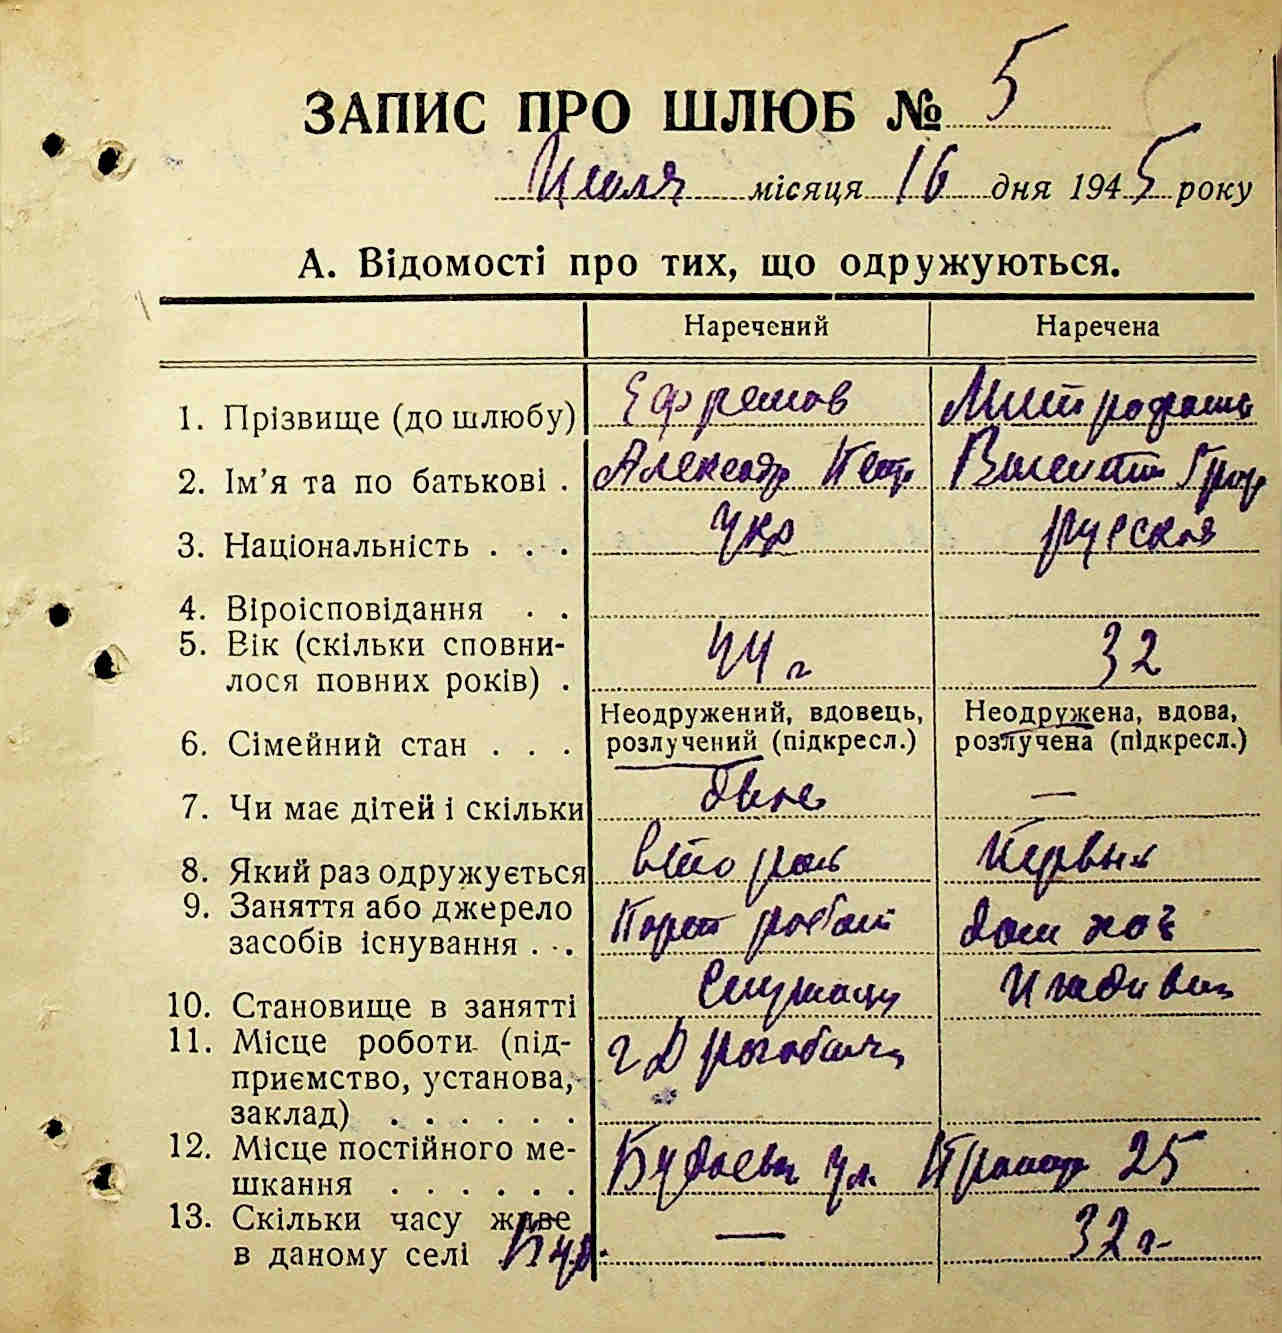 ЗАПИС ПРО ШЛЮБ № 5
Июля місяця 16 дня 1945 року
А. Відомості про тих, що одружуються.
Наречений Наречена
1. Прізвище (до шлюбу) Ефремов
2. Ім’я та по батькові . Александр Петр Валентин Григ
3. Національність . . . Укр русская
4. Віроісповідання . .
5. Вік (скільки сповни-
лося повних років) . 44 г 32
Неодружений, вдовець, Неодружена, вдова,
6. Сімейний стан . . . розлучений (підкресл.) розлучена (підкресл.)
7. Чи має дітей і скільки двое —
8. Який раз одружується вторая Первый
9. Заняття або джерело
засобів існування . . . Парт работ дом хоз
10. Становище в занятті Служащи Иждивен
11. Місце роботи (під- г Дрогобыч
приємство, установа,
заклад) . . . . . .
12. Місце постійного ме-
шкання . . . . . . ул. 25
13. Скільки часу живе
в даному селі — 32 г